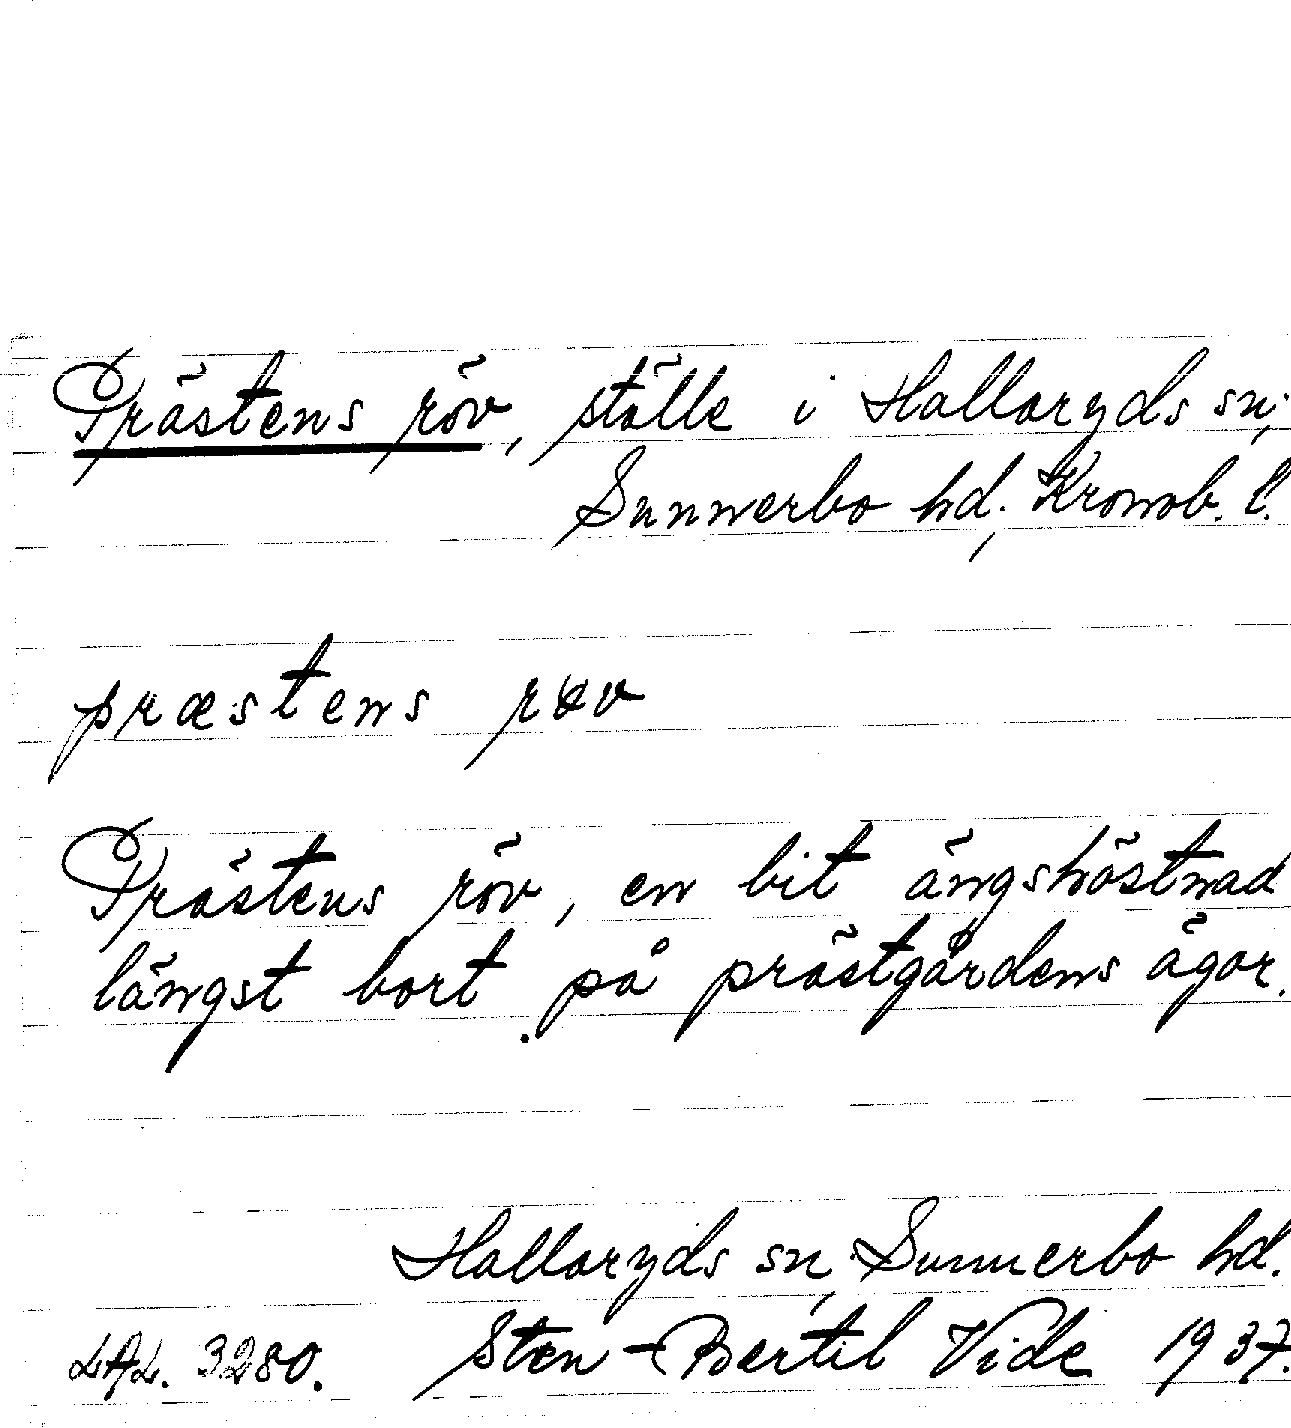 Prästens röv, ställe i Hallaryds sn,
Sunnerbo hd, Kronob. l.
præstens røv
Prästens röv, en bit ängshöstnad
längst bort på prästgårdens ägor.
Hallaryds sn, Sunnerbo hd.
LAL. 3280. Sten-Bertil Vide 1937.